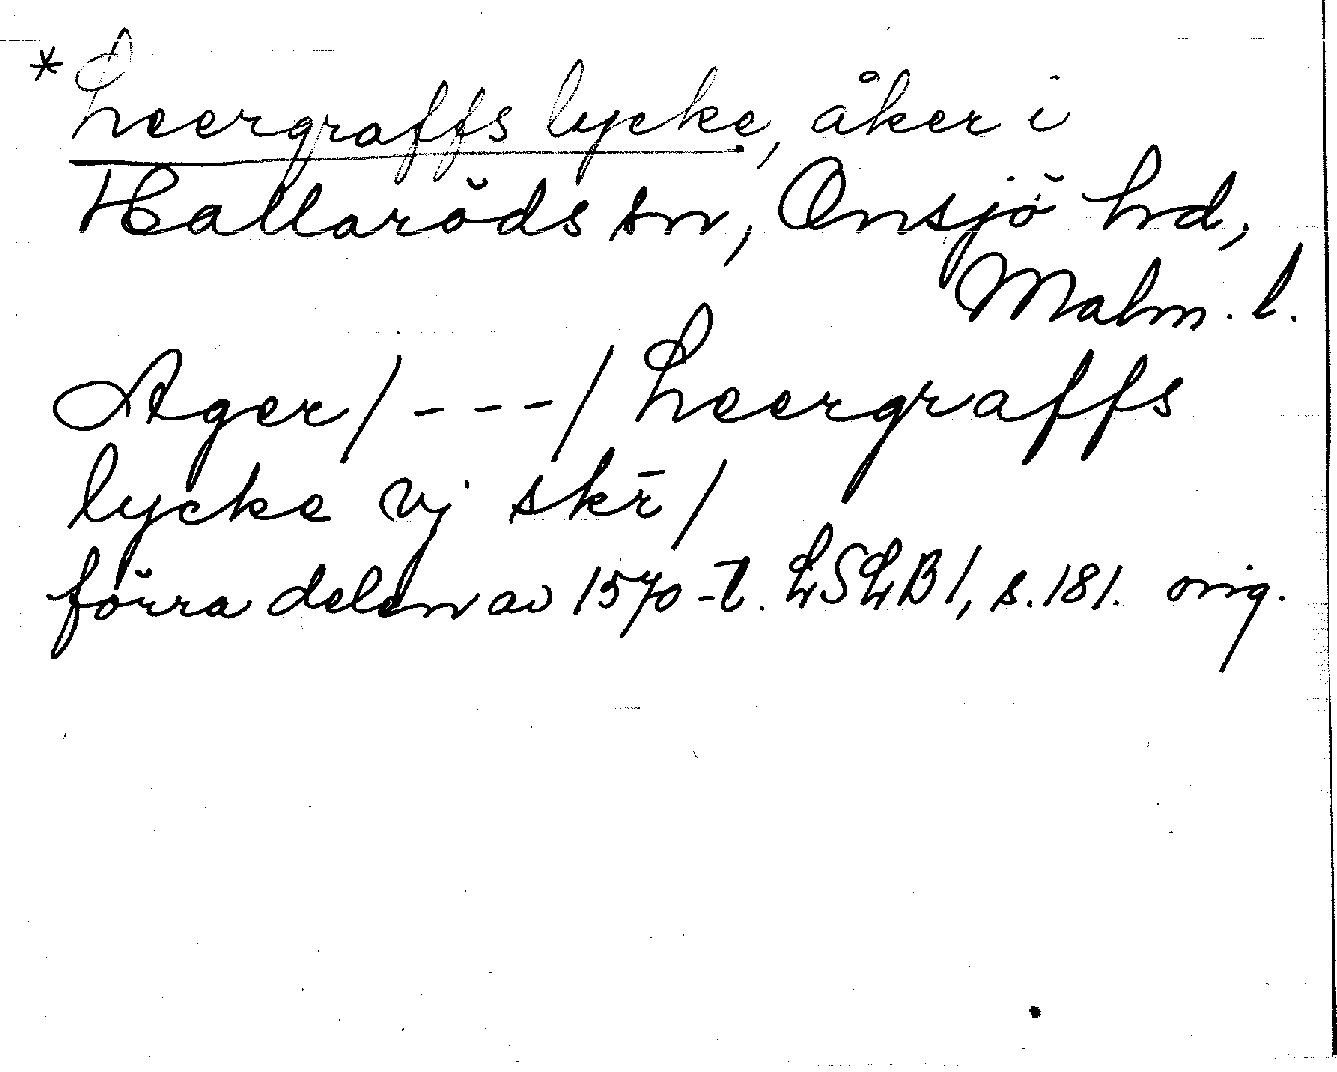 *Leergraffs lycke, åker i
Hallaröds sn, Onsjö hd,
Malm. l.
Ager/---/ Leergraffs
lycke vj skr̄/
förra delen av 1570-t. LSLB1, s.181. orig.